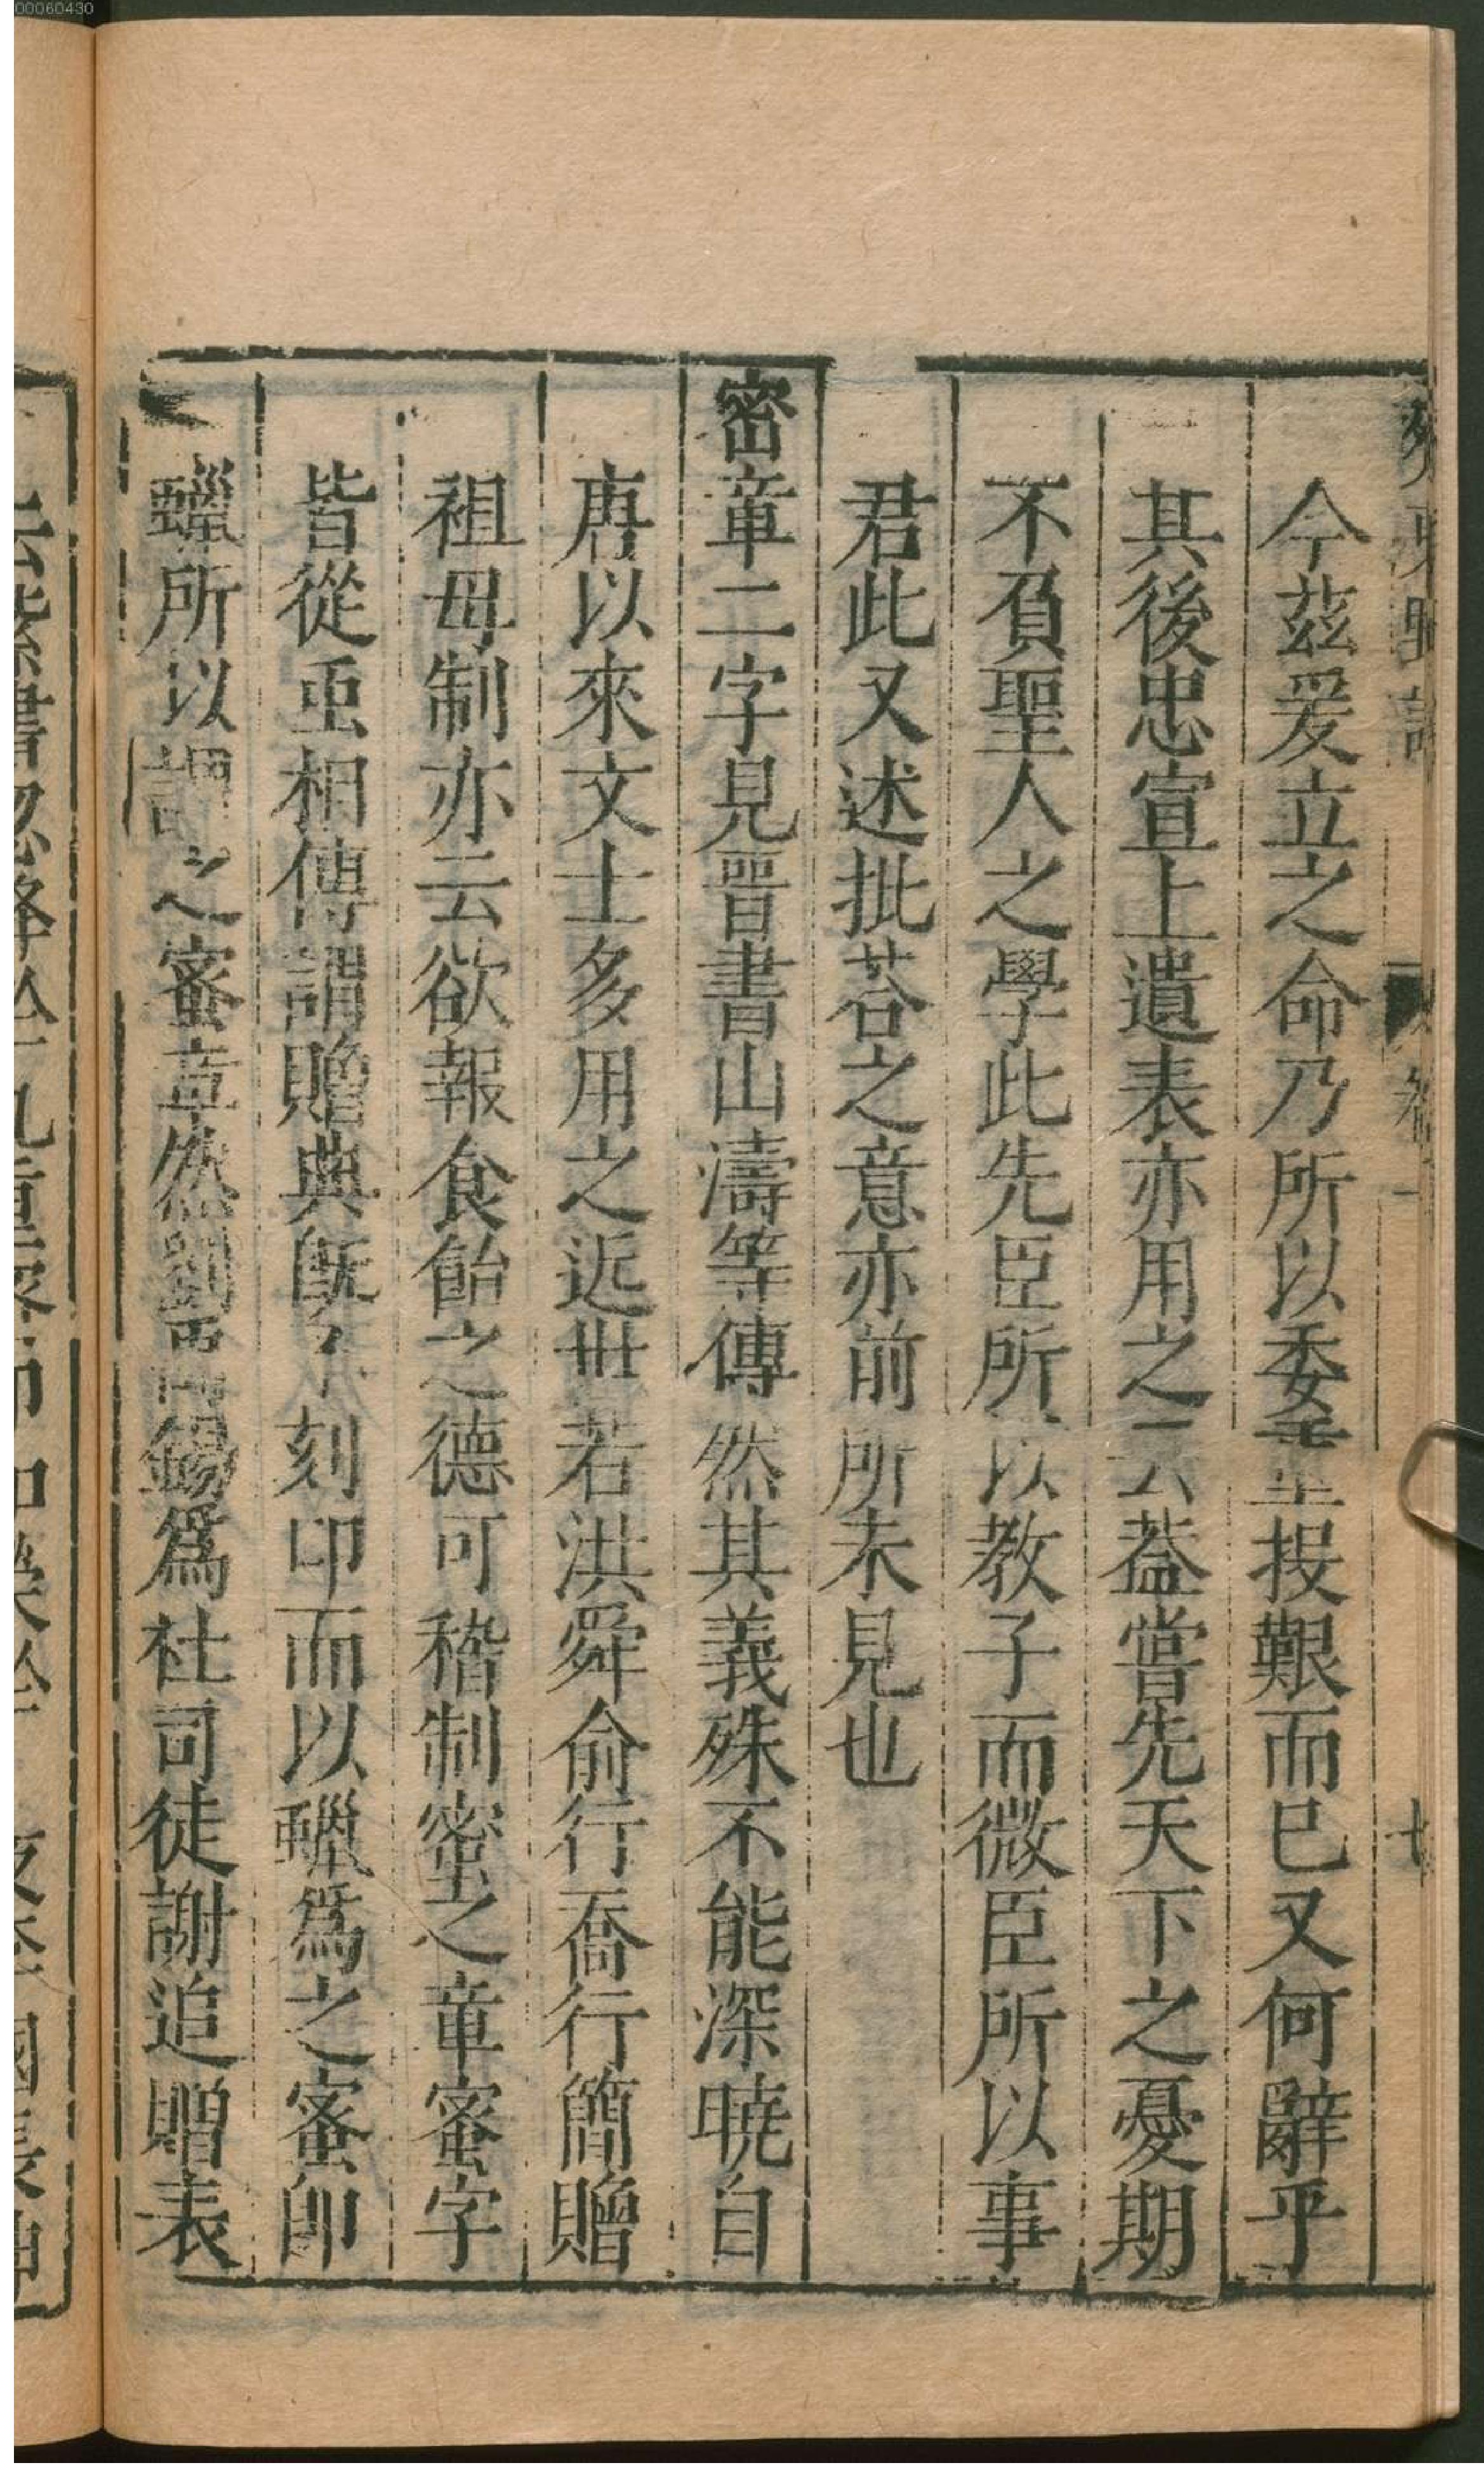 00060430
今茲爰立之命乃所以委重投艱而已又何辭乎
其後忠宣上遺表亦用之云葢嘗先天下之憂期
不負聖人之學此先臣所以教子而微臣所以事
君此又述批荅之意亦前所未見也
密章二字見晉書山濤等傳然其義殊不能深曉自
唐以來文士多用之近世若洪舜俞行喬行簡贈
祖母制亦云欲報食飴之德可稽制蜜之章蜜字
皆從虫相傳謂贈典既不刻印而以蠟爲之蜜卽
蠟所以謂之蜜章然劉禹錫爲杜司徒謝追贈表